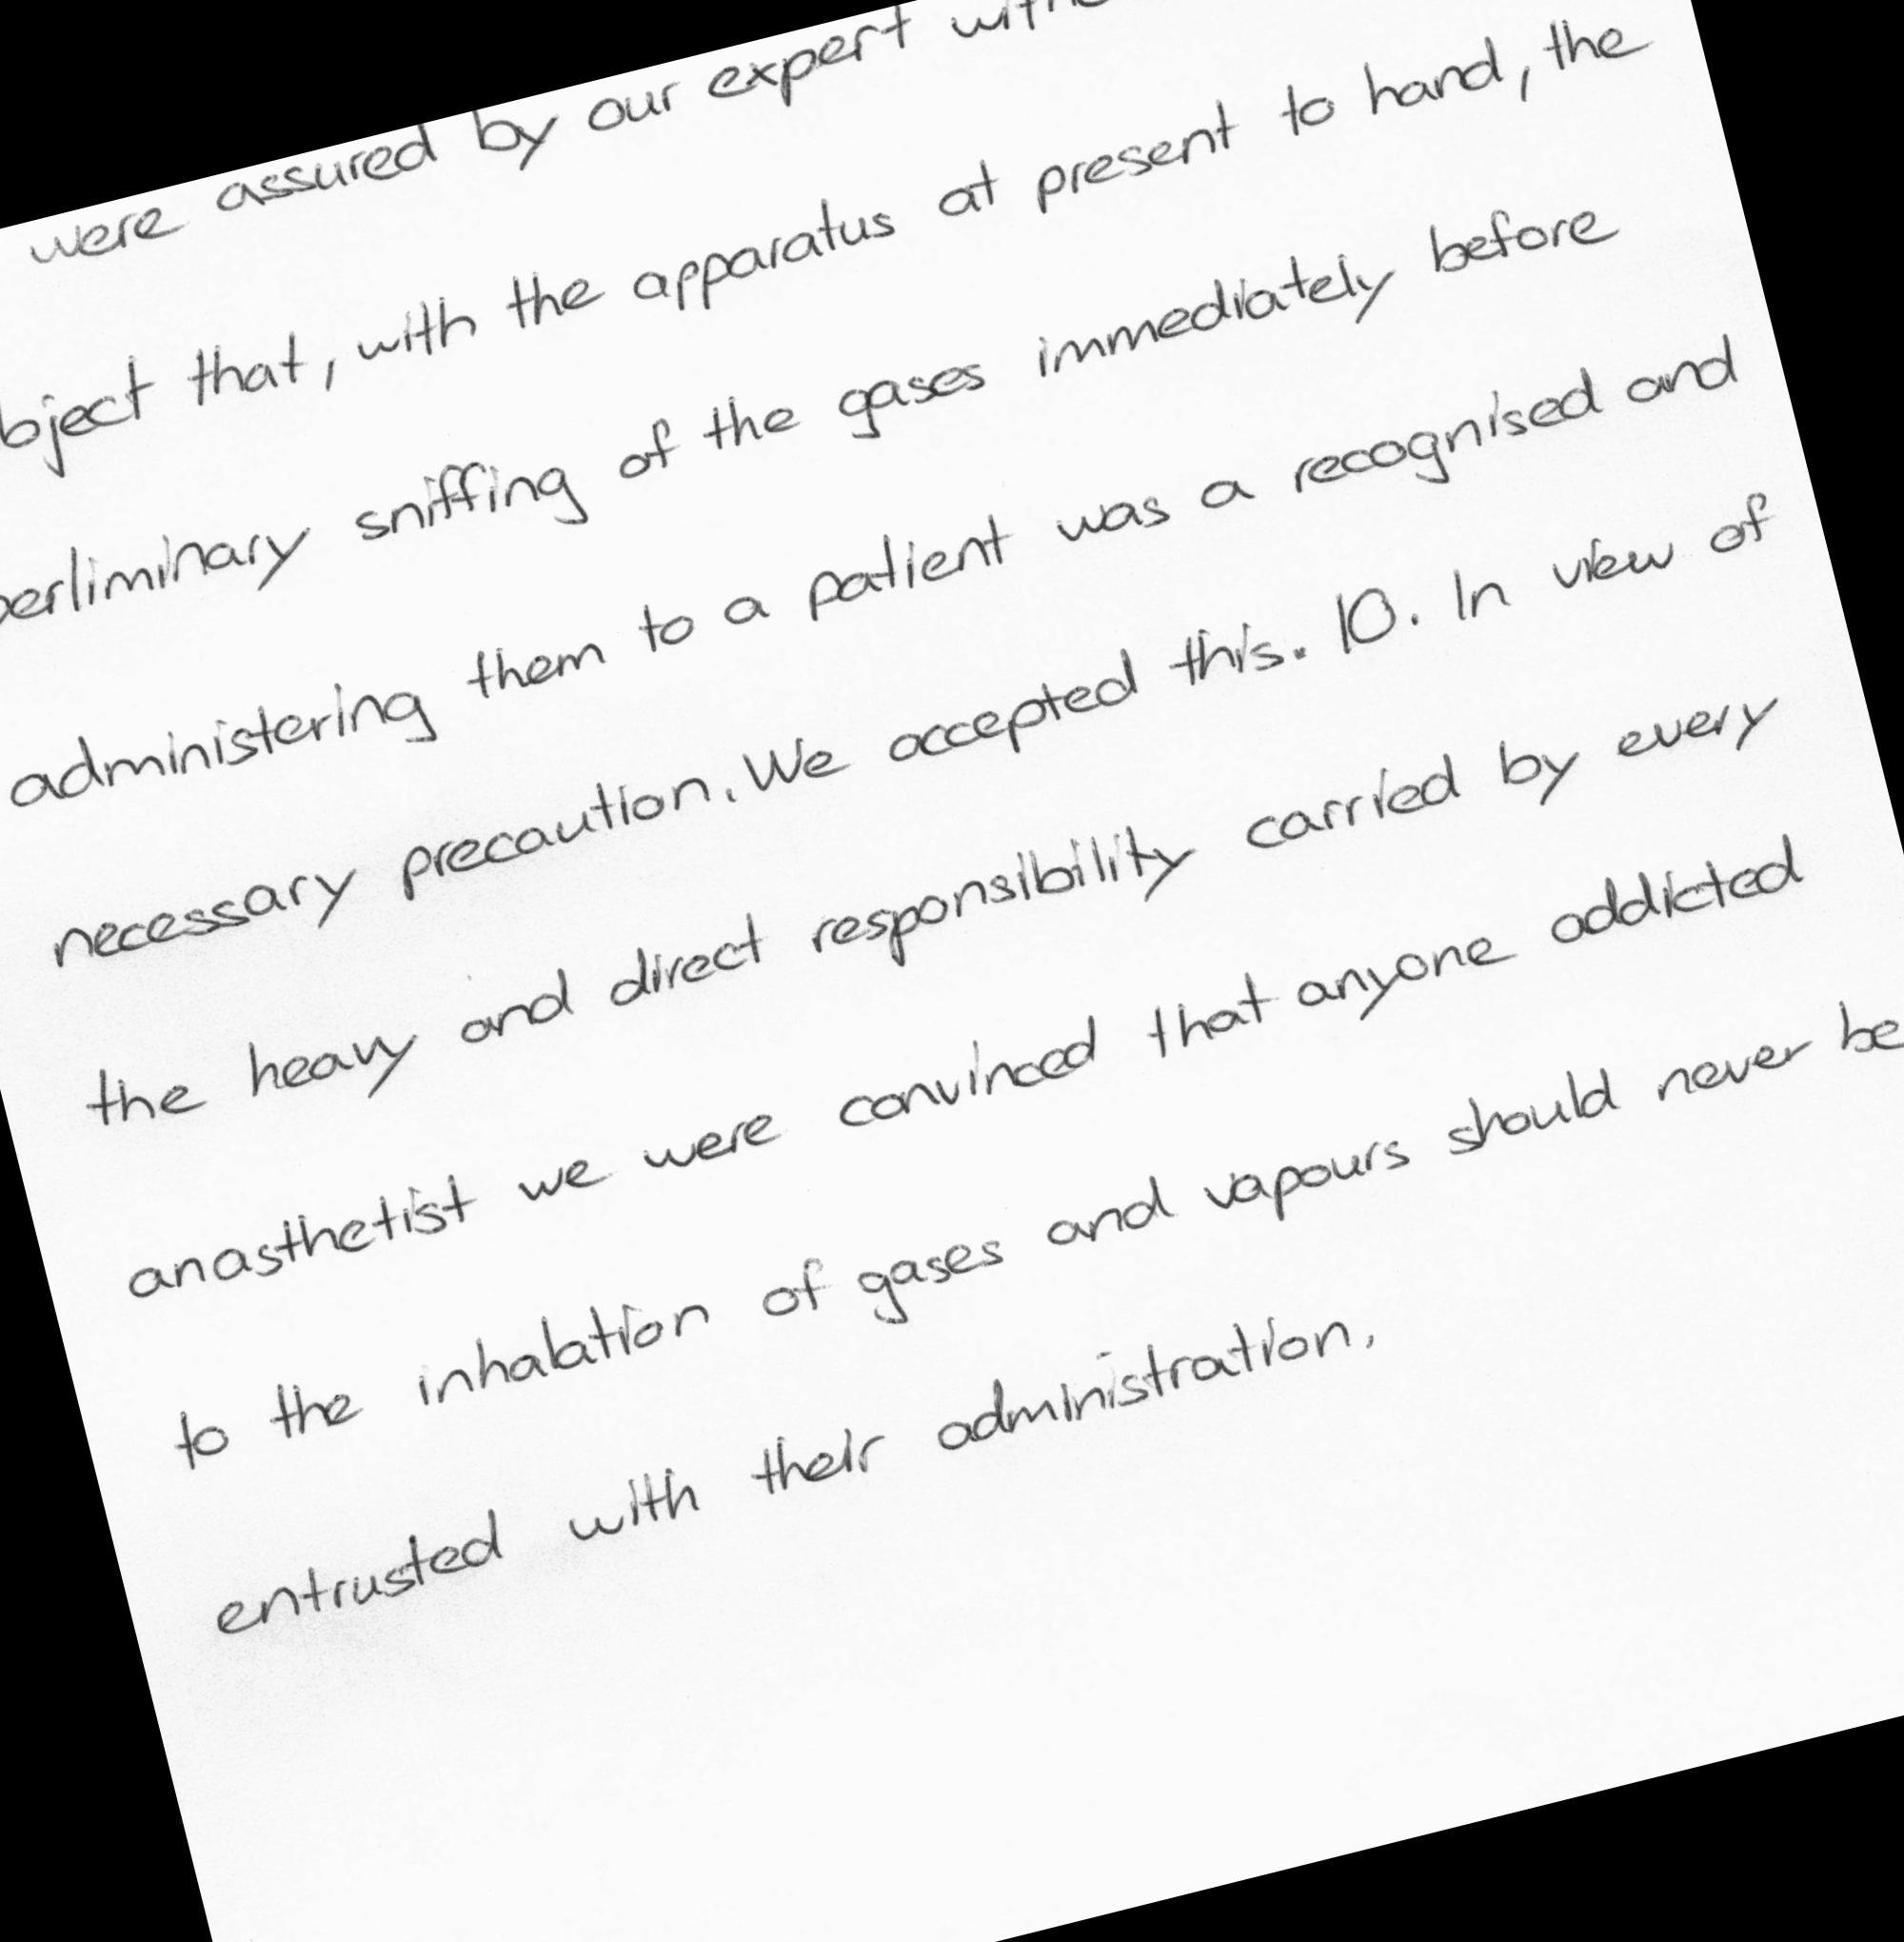 were assured by our expert
that, with the apparatus at present to hand, the
perliminary sniffing of the gases immediately before
administering them to a patient was a recognised and
necessary precaution. We accepted this. 10. In view of
the heavy and direct responsibility carried by every
anasthetist we were convinced that anyone addicted
to the inhalation of gases and vapours should never be
entrusted with their administration.